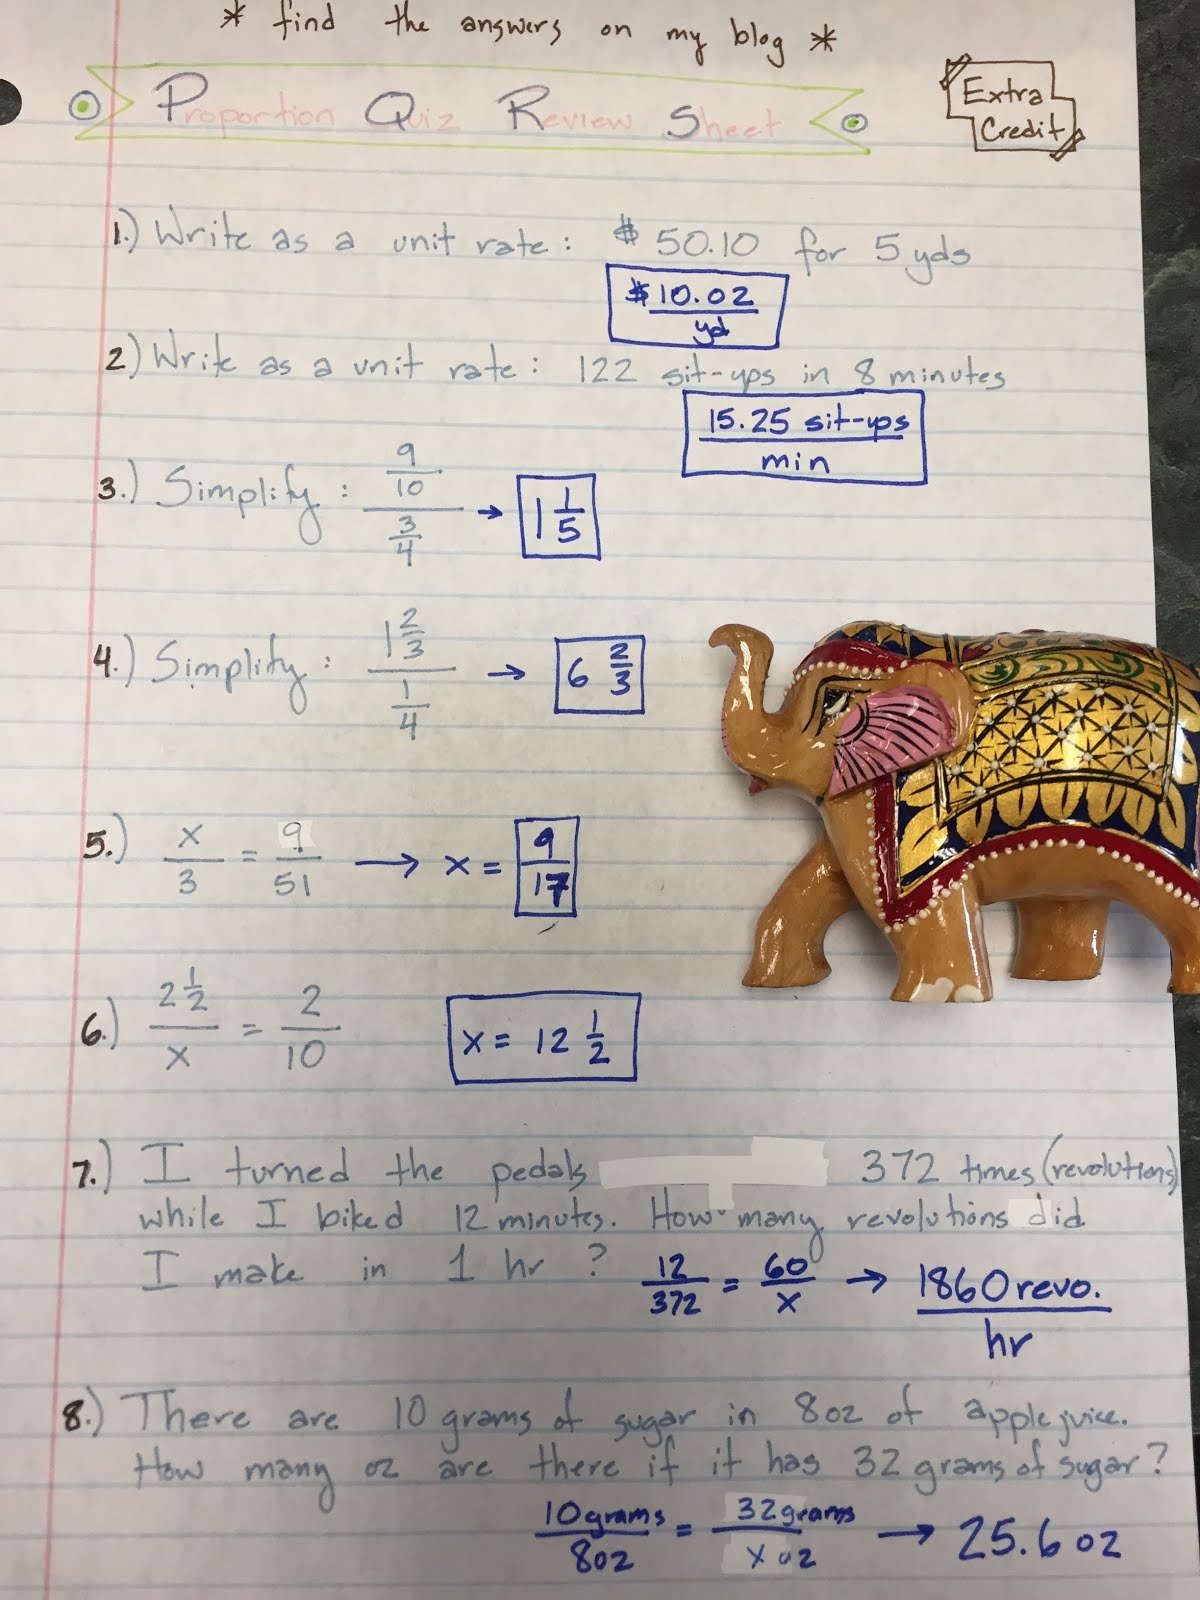 * find the answers on my blog *
Proportion Quiz Review Sheet
Extra
Credit
1.) Write as a unit rate: $50.10 for 5 yds
$10.02
yd
2) Write as a unit rate: 122 sit-ups in 8 minutes
15.25 sit-ups
min
3.) Simplify: 9/10 / 3/4 → 1 1/5
4.) Simplify: 1 2/3 / 1/4 → 6 2/3
5.) x/3 = 9/51 → x = 9/17
6.) 2 1/2 / x = 2/10 x = 12 1/2
7.) I turned the pedals 372 times (revolutions)
while I biked 12 minutes. How many revolutions did
I make in 1 hr?
12/372 = 60/x → 1860 revo./hr
8.) There are 10 grams of sugar in 8oz of apple juice.
How many oz are there if it has 32 grams of sugar?
10 grams/8oz = 32 grams/x oz → 25.6 oz